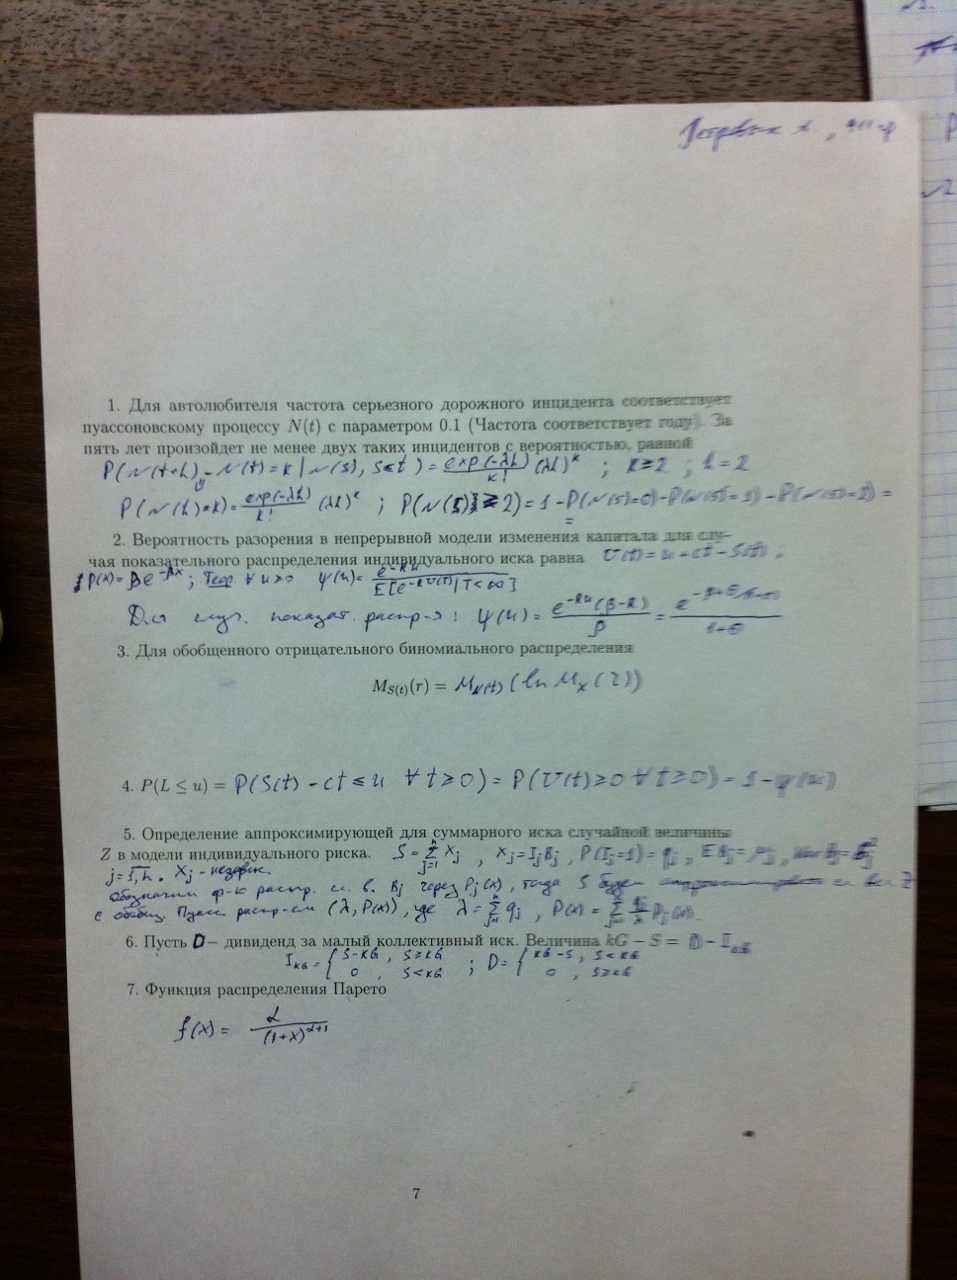 1. Для автолюбителя частота серьезного дорожного инцидента соответствует
пуассоновскому процессу N(t) с параметром 0.1 (Частота соответствует году). За
пять лет произойдет не менее двух таких инцидентов с вероятностью, равной
P(N(t+h) - N(t) = k | N(s), s≤t) = exp(-λh)/k! (λh)^k ; k≥2 ; h=2
P(N(h)=k) = exp(-λh)/k! (λh)^k ; P(N(5) ≥ 2) = 1 - P(N(5)=0) - P(N(5)=1) - P(N(5)=2) =
=
2. Вероятность разорения в непрерывной модели изменения капитала для слу-
чая показательного распределения индивидуального иска равна U(t) = u + ct - S(t) .
P(x) = βe^-βx ; Теор. ∀ u>0 ψ(u) = e^-Ru / E[e^-RU(T) | T<∞]
Для случ. показат. распр-я : ψ(u) = e^-Ru (β-R) / β =
3. Для обобщенного отрицательного биномиального распределения
M_S(t)(r) = M_N(t) (ln M_X (r))
4. P(L ≤ u) = P(S(t) - ct ≤ u ∀ t ≥ 0) = P(U(t) ≥ 0 ∀ t ≥ 0) = 1 - ψ(u)
5. Определение аппроксимирующей для суммарного иска случайной величины
Z в модели индивидуального риска. S = Σ_{j=1}^n X_j , X_j = I_j B_j , P(I_j=1) = q_j , E B_j = μ_j ,
j = 1,n . X_j - независ.
Обозначим ф-ю распр. сл. в. B_j через P_j(x), тогда S будем
с обобщ. Пуасс. распр-ем (λ, P(x)), где λ = Σ_{j=1}^n q_j , P(x) = Σ_{j=1}^n q_j/λ P_j(x).
6. Пусть D− дивиденд за малый коллективный иск. Величина kG − S = D - I_kG
I_kG = { S-kG , S≥kG ; D = { kG-S , S<kG
0 , S<kG 0 , S≥kG
7. Функция распределения Парето
f(x) = α / (1+x)^α+1
7